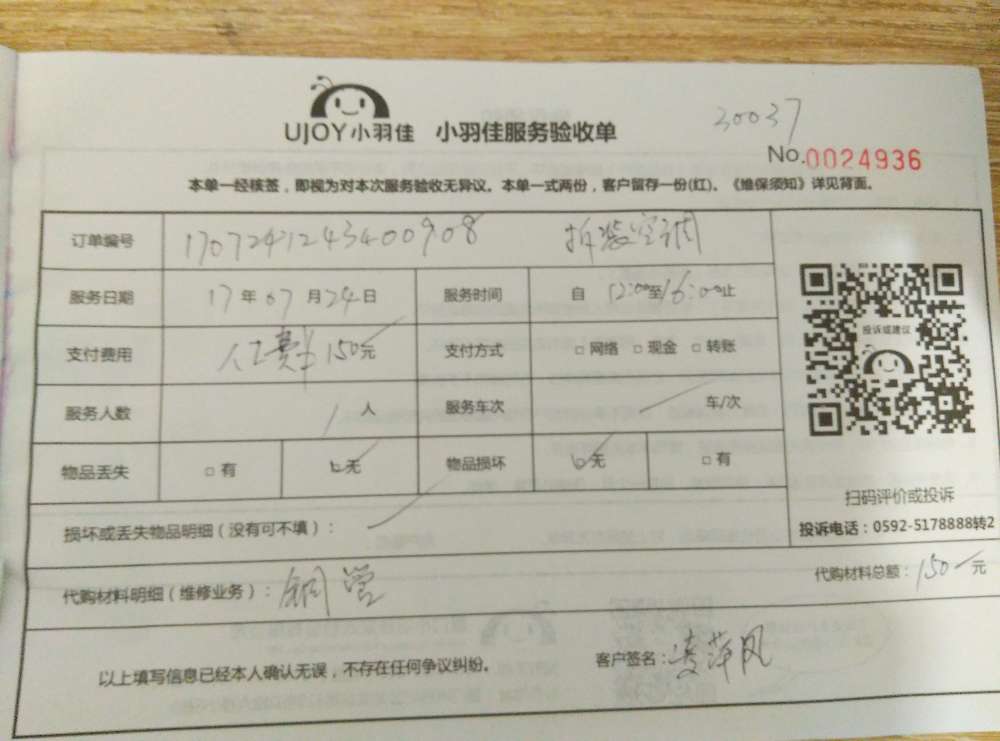 30037
UJOY小羽佳 小羽佳服务验收单
No.0024936
本单一经核签，即视为对本次服务验收无异议。本单一式两份，客户留存一份(红)。《维保须知》详见背面。
订单编号 1707241243400908 拆装空调
服务日期 17年07月24日 服务时间 自12:00至16:00止
支付费用 人工费150元 支付方式 □网络 □现金 □转账
服务人数 1人 服务车次 车/次
物品丢失 □有 □无 物品损坏 □无 □有
投诉或建议
扫码评价或投诉
投诉电话：0592-5178888转2
损坏或丢失物品明细（没有可不填）：
代购材料明细（维修业务）：铜管 代购材料总额：150元
以上填写信息已经本人确认无误，不存在任何争议纠纷。 客户签名：凌萍凤